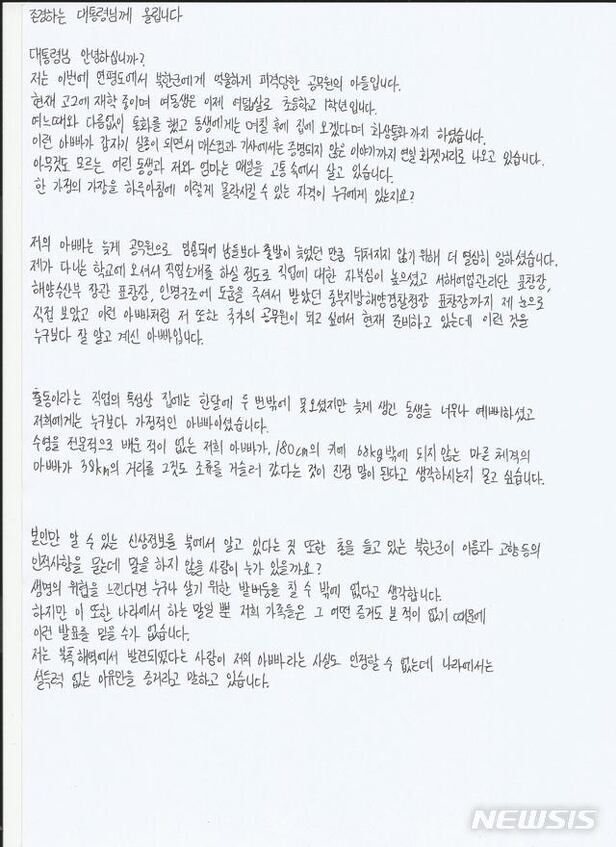 존경하는 대통령님께 올립니다
대통령님 안녕하십니까?
저는 이번에 연평도에서 북한군에게 억울하게 피격당한 공무원의 아들입니다.
현재 고2에 재학 중이며 여동생은 이제 여덟살로 초등학교 1학년입니다.
여느때와 다름없이 통화를 했고 동생에게는 며칠 후에 집에 오겠다며 화상통화까지 하였습니다.
이런 아빠가 갑자기 실종이 되면서 매스컴과 기사에서는 증명되지 않은 이야기까지 연일 화젯거리로 나오고 있습니다.
아무것도 모르는 어린 동생과 저와 엄마는 매일을 고통 속에서 살고 있습니다.
한 가정의 가장을 하루아침에 이렇게 몰락시킬 수 있는 자격이 누구에게 있는지요?
저의 아빠는 늦게 공무원으로 임용되어 남들보다 출발이 늦었던 만큼 뒤처지지 않기 위해 더 열심히 일하셨습니다.
제가 다니는 학교에 오셔서 직업소개를 하실 정도로 직업에 대한 자부심이 높으셨고 서해어업관리단 표창장,
해양수산부 장관 표창장, 인명구조에 도움을 주셔서 받았던 중부지방해양경찰청장 표창장까지 제 눈으로
직접 보았고 이런 아빠처럼 저 또한 국가의 공무원이 되고 싶어서 현재 준비하고 있는데 이런 것을
누구보다 잘 알고 계신 아빠입니다.
출동이라는 직업의 특성상 집에는 한달에 두 번밖에 못오셨지만 늦게 생긴 동생을 너무나 예뻐하셨고
저희에게는 누구보다 가정적인 아빠이셨습니다.
수영을 전문적으로 배운 적이 없는 저희 아빠가, 180cm의 키에 68kg밖에 되지 않는 마른 체격의
아빠가 38km의 거리를 그것도 조류를 거슬러 갔다는 것이 진정 말이 된다고 생각하시는지 묻고 싶습니다.
본인만 알 수 있는 신상정보를 북에서 알고 있다는 것 또한 총을 들고 있는 북한군이 이름과 고향 등의
인적사항을 묻는데 말을 하지 않을 사람이 누가 있을까요?
생명의 위협을 느낀다면 누구나 살기 위한 발버둥을 칠 수 밖에 없다고 생각합니다.
하지만 이 또한 나라에서 하는 말일 뿐 저희 가족들은 그 어떤 증거도 본 적이 없기 때문에
이런 발표를 믿을 수가 없습니다.
저는 북측 해역에서 발견되었다는 사람이 저의 아빠라는 사실도 인정할 수 없는데 나라에서는
설득력 없는 이유만을 증거라고 말하고 있습니다.
NEWSIS